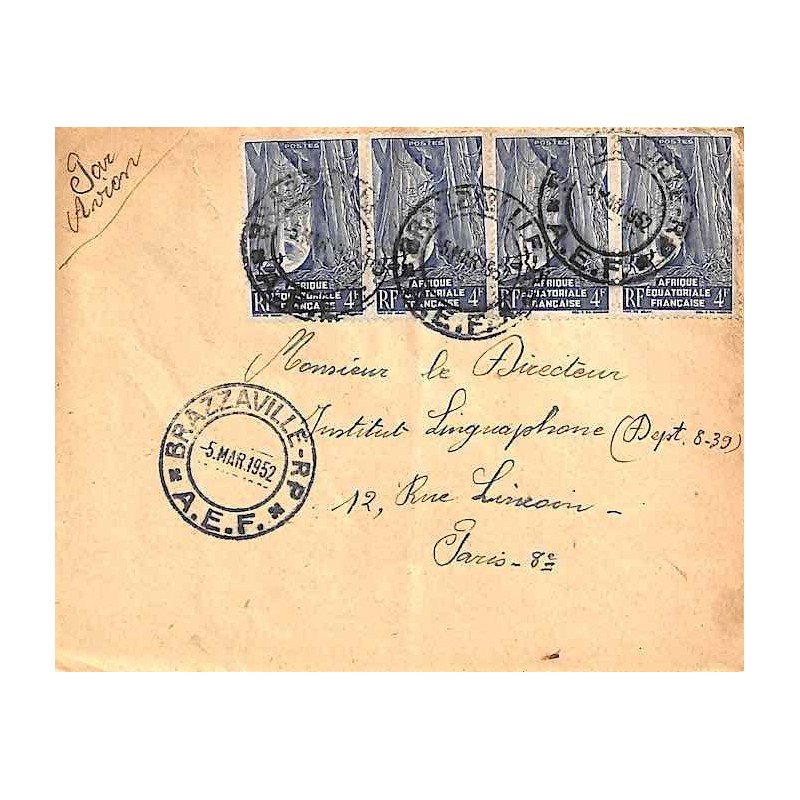 Par
Avion
POSTES POSTES POSTES POSTES
RF AFRIQUE ÉQUATORIALE FRANÇAISE 4F
RF AFRIQUE ÉQUATORIALE FRANÇAISE 4F
RF AFRIQUE ÉQUATORIALE FRANÇAISE 4F
RF AFRIQUE ÉQUATORIALE FRANÇAISE 4F
BRAZZAVILLE
5.MAR.1952
A.E.F.
Monsieur le Directeur
Institut Linguaphone (Dept. 8-39)
12, Rue Lincoln -
Paris - 8e
BRAZZAVILLE-RP
-5.MAR.1952
* A.E.F. *